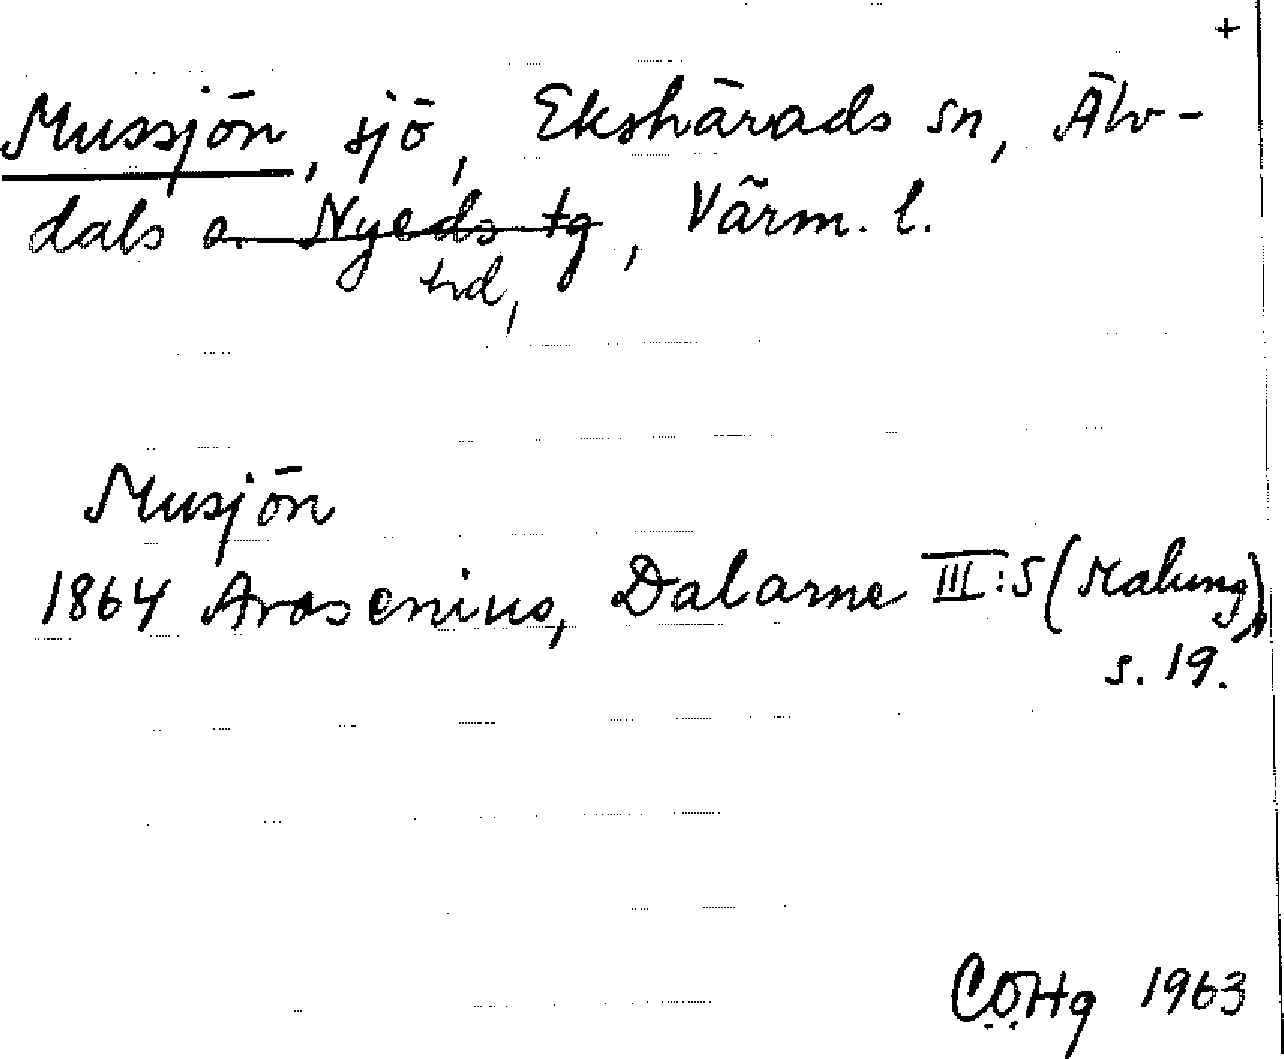 +
Mussjön, sjö, Ekshärads sn, Älv-
dals o. Nyeds tg, Värm. l.
hd,
Musjön
1864 Arosenius, Dalarne III:5 (Malung),
s. 19.
CÖHg 1963